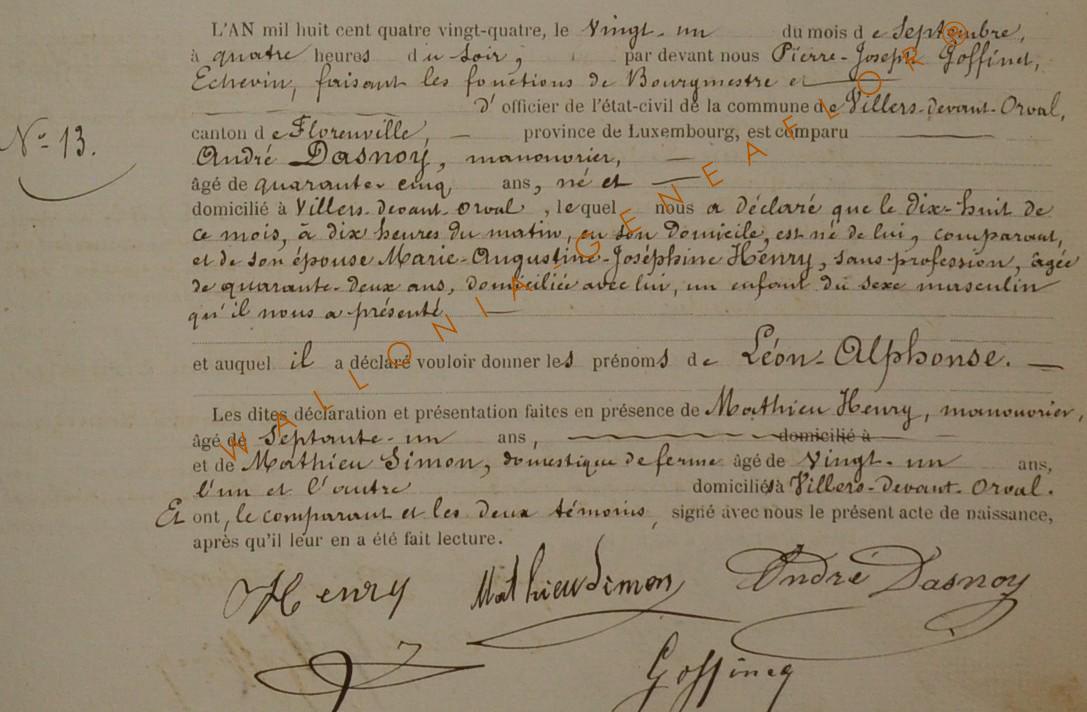 L'AN mil huit cent quatre vingt-quatre, le Vingt-un du mois de Septembre,
à quatre heures du soir, par devant nous Pierre-Joseph Goffinet,
Echevin, faisant les fonctions de Bourgmestre et
d'officier de l'état-civil de la commune de Villers-devant-Orval,
canton de Florenville, — province de Luxembourg, est comparu
N° 13.
André Dasnoy, manouvrier, —
âgé de quarante-cinq ans, né et —
domicilié à Villers-devant-Orval, lequel nous a déclaré que le dix-huit de
ce mois, à dix heures du matin, en son domicile, est né de lui, comparant,
et de son épouse Marie-Augustine-Joséphine Henry, sans profession, âgée
de quarante-deux ans, domiciliée avec lui, un enfant du sexe masculin
qu'il nous a présenté —
et auquel il a déclaré vouloir donner les prénoms de Léon-Alphonse. —
Les dites déclaration et présentation faites en présence de Mathieu Henry, manouvrier,
âgé de Septante-un ans, domicilié à
et de Mathieu Simon, domestique de ferme âgé de Vingt-un ans,
l'un et l'autre domiciliés à Villers-Devant-Orval.
Et ont, le comparant et les deux témoins, signé avec nous le présent acte de naissance,
après qu'il leur en a été fait lecture.
Henry Mathieu Simon André Dasnoy
Goffinet
WALLONIA-GENEAFLOR®